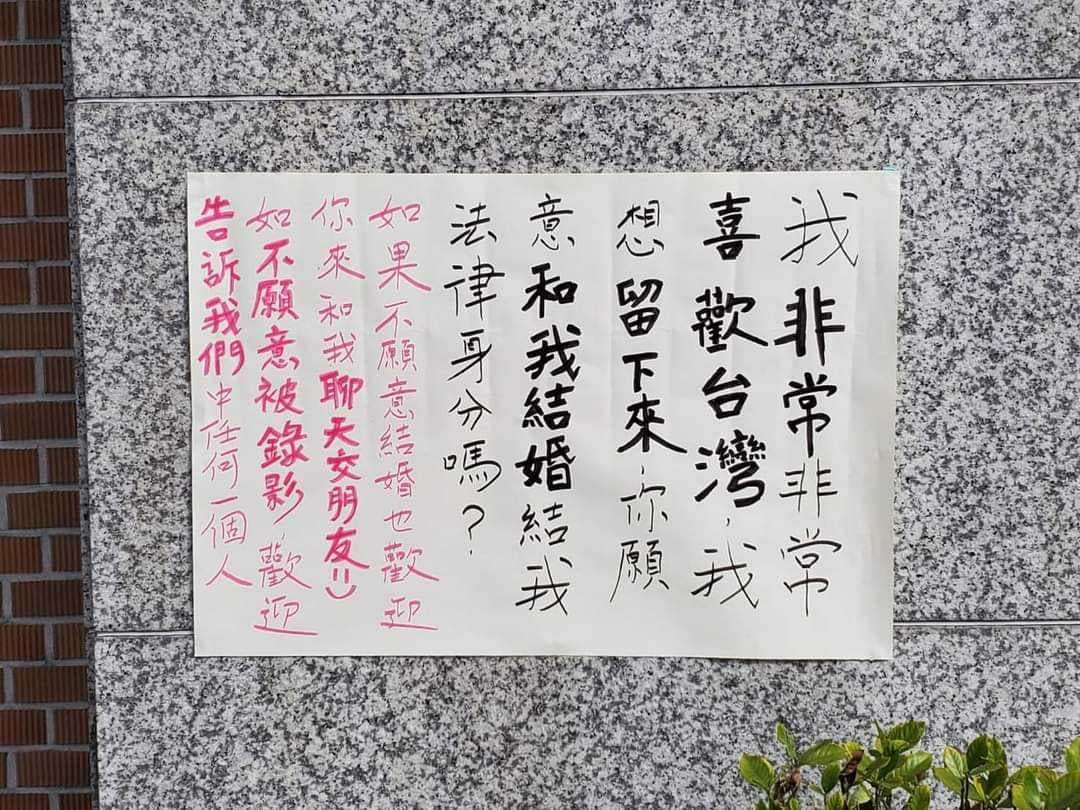 我非常非常
喜歡台灣，我
想留下來，你願
意和我結婚結我
法律身分嗎？
如果不願意結婚也歡迎
你來和我聊天交朋友=)
如不願意被錄影，歡迎
告訴我們中任何一個人